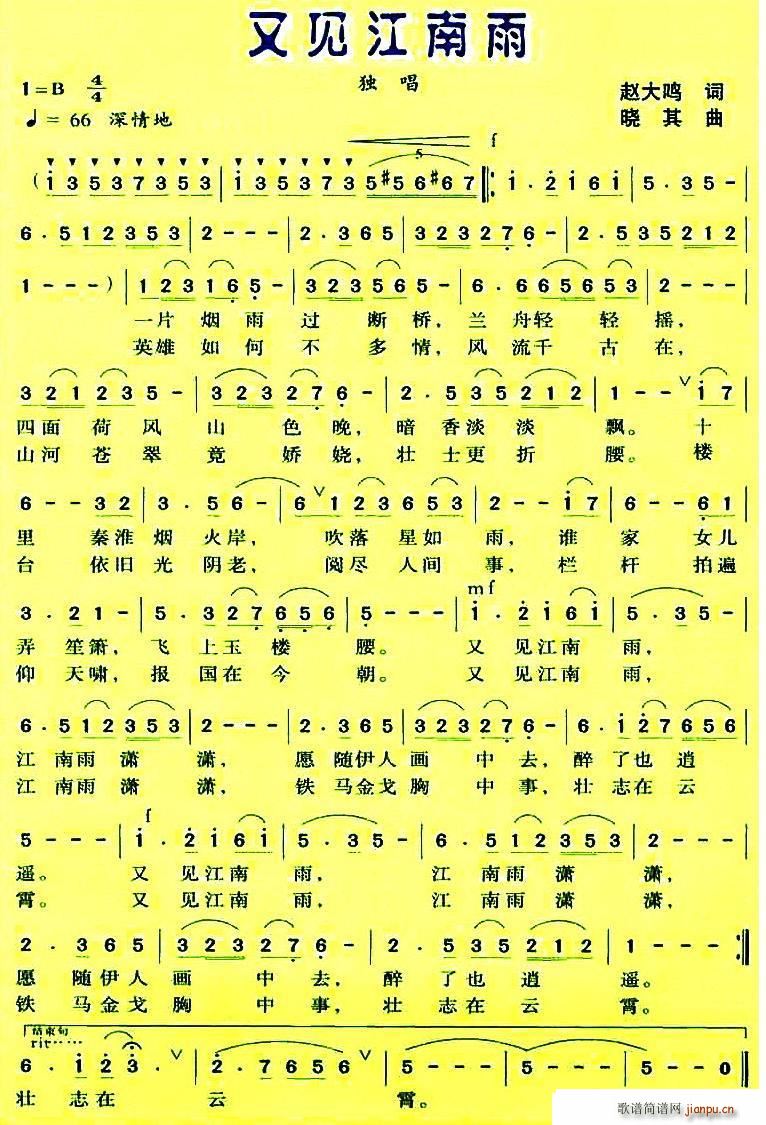 又见江南雨
1=B 4/4
独 唱
赵大鸣 词
♩= 66 深情地
晓 其 曲
f
5
( i 3 5 3 7 3 5 3 | i 3 5 3 7 3 5 #5 6 #6 7 ‖: i · 2 i 6 i | 5 · 3 5 - |
6 · 5 1 2 3 5 3 | 2 - - - | 2 · 3 6 5 | 3 2 3 2 7 6 - | 2 · 5 3 5 2 1 2 |
1 - - - ) | 1 2 3 1 6 5 - | 3 2 3 5 6 5 - | 6 · 6 6 5 6 5 3 | 2 - - - |
一片 烟 雨 过 断 桥, 兰 舟轻 轻 摇,
英雄 如 何 不 多 情, 风 流千 古 在,
3 2 1 2 3 5 - | 3 2 3 2 7 6 - | 2 · 5 3 5 2 1 2 | 1 - - ∨ i 7 |
四面 荷 风 山 色 晚, 暗 香淡 淡 飘。 十
山河 苍 翠 竟 娇 娆, 壮 士更 折 腰。 楼
6 - - 3 2 | 3 · 5 6 - | 6 ∨ 1 2 3 6 5 3 | 2 - - i 7 | 6 - - 6 1 |
里 秦淮 烟 火 岸, 吹落 星如 雨, 谁 家 女儿
台 依旧 光 阴老, 阅尽 人间 事, 栏 杆 拍遍
mf
3 · 2 1 - | 5 · 3 2 7 6 5 6 | 5 - - - | i · 2 i 6 i | 5 · 3 5 - |
弄 笙箫, 飞 上玉 楼 腰。 又 见江南 雨,
仰 天啸, 报 国在 今 朝。 又 见江南 雨,
6 · 5 1 2 3 5 3 | 2 - - - | 2 · 3 6 5 | 3 2 3 2 7 6 - | 6 · i 2 7 6 5 6 |
江 南雨 潇 潇, 愿 随伊人 画 中 去, 醉 了也 逍
江 南雨 潇 潇, 铁 马金戈 胸 中 事, 壮 志在 云
f
5 - - - | i · 2 i 6 i | 5 · 3 5 - | 6 · 5 1 2 3 5 3 | 2 - - - |
遥。 又 见江南 雨, 江 南雨 潇 潇,
霄。 又 见江南 雨, 江 南雨 潇 潇,
2 · 3 6 5 | 3 2 3 2 7 6 - | 2 · 5 3 5 2 1 2 | 1 - - - :‖
愿 随伊人 画 中 去, 醉 了也 逍 遥。
铁 马金戈 胸 中 事, 壮 志在 云 霄。
结束句
rit······
6 · i 2 3 · ∨ | 2 · 7 6 5 6 | 5 - - - | 5 - - - | 5 - - 0 ‖
壮 志在 云 霄。
歌谱简谱网
jianpu.cn